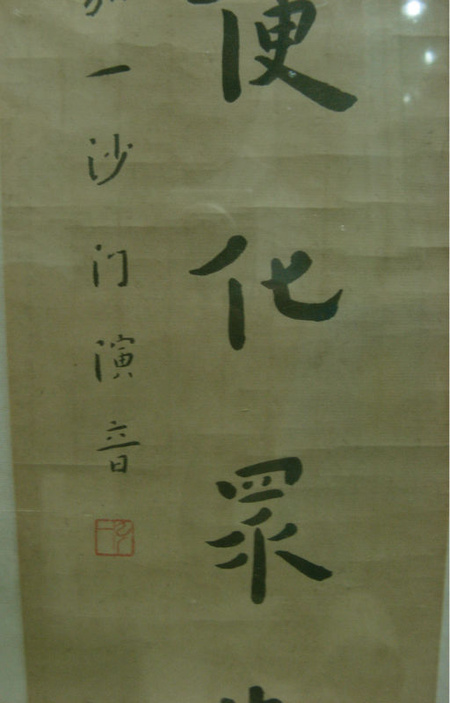 便化眾
一沙门演音